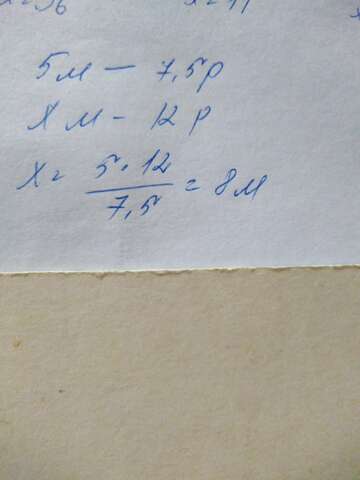 5м — 7,5р
х м - 12 р
х = 5·12 / 7,5 = 8м